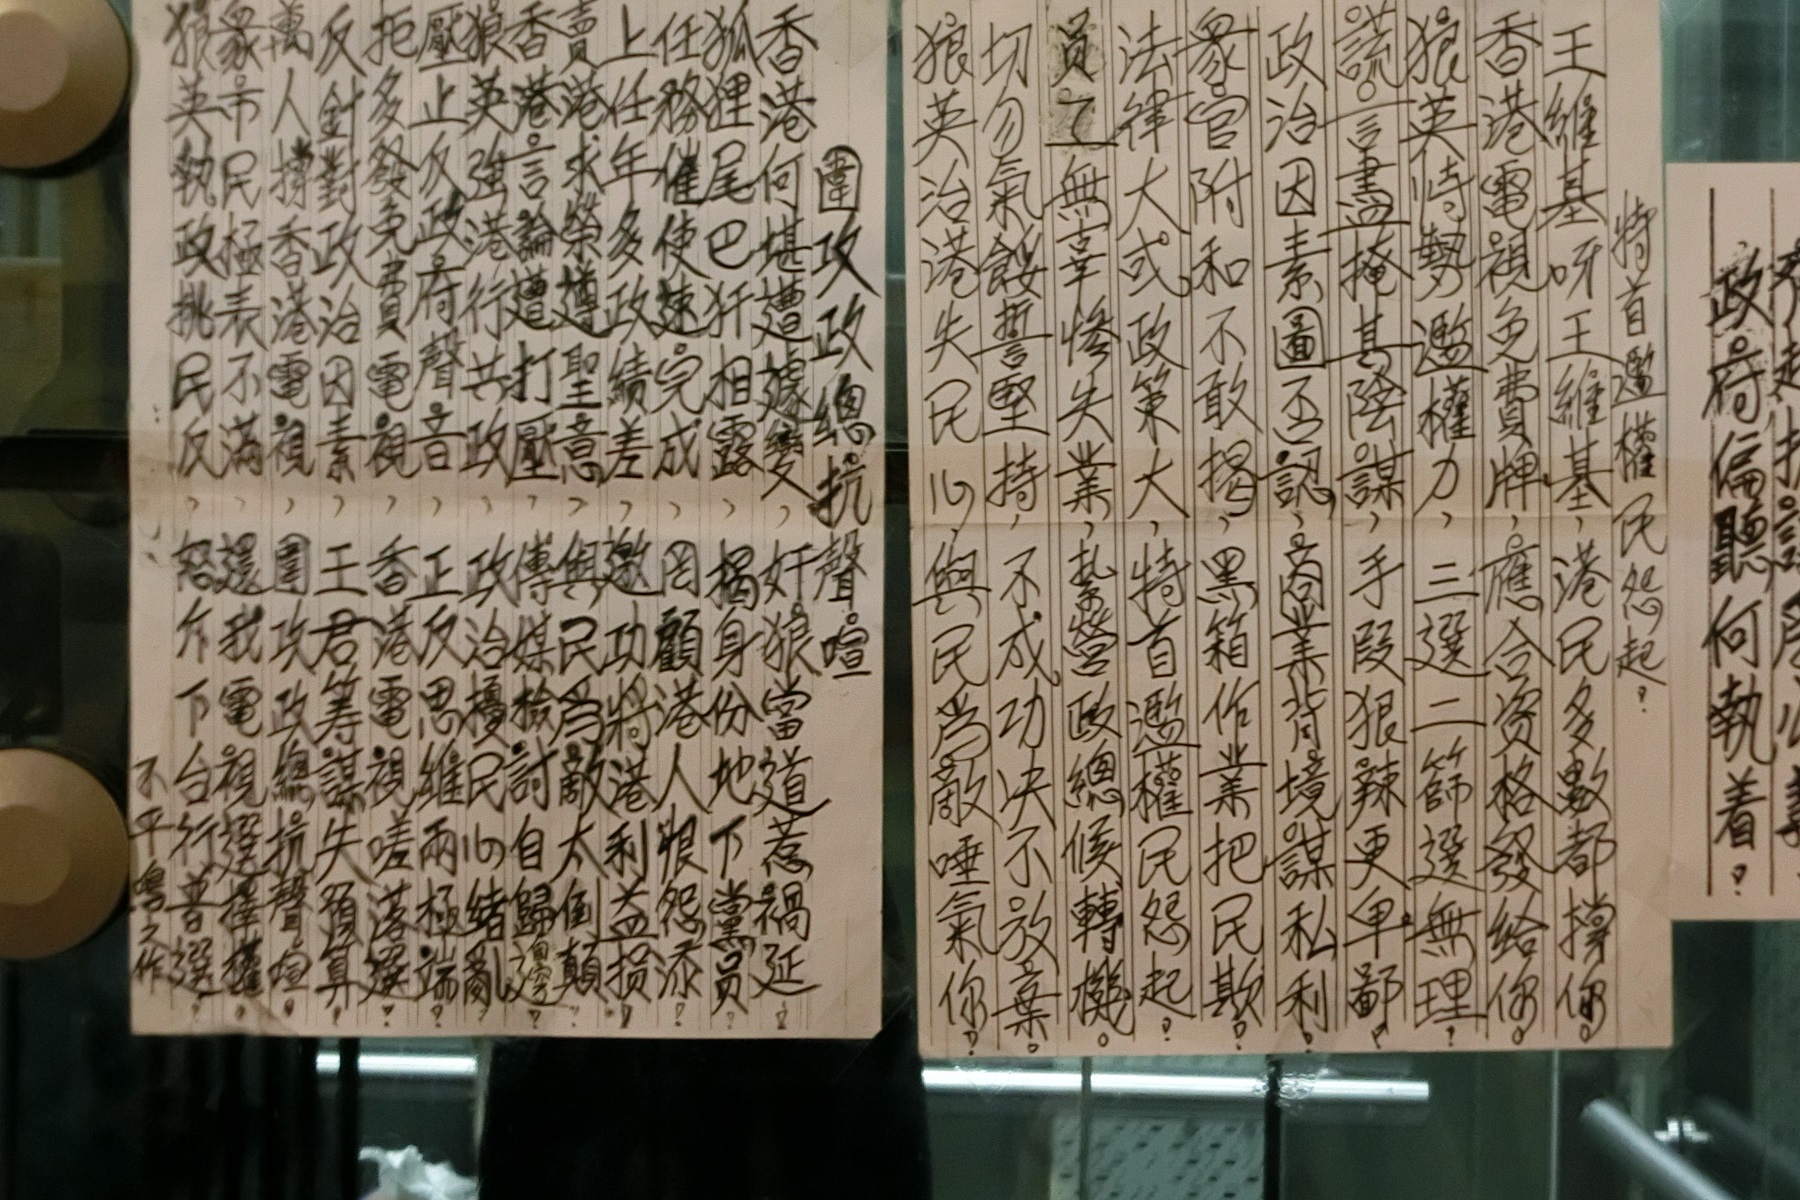 政府偏聽何執着?
特首濫權民怨起!
王維基呀王維基,港民多數都撐你!
香港電視免費牌,應合資格發給你!
狼英恃勢濫權力,三選二篩選無理!
謊言盡掩其陰謀,手段狠辣更卑鄙!
政治因素圖否認,商業背境謀私利!
眾官附和不敢揭,黑箱作業把民欺!
法律大或政策大,特首濫權民怨起!
員工無辜慘失業,紮營政總候轉機。
切勿氣餒誓堅持,不成功决不放棄。
狼英治港失民心,與民爲敵唾氣你!
圍攻政總抗聲喧
香港何堪遭據變,奸狼當道惹禍延!
狐狸尾巴犴相露,揭身份地下黨員!
任務催使速完成,罔顧港人恨怨添!
上任年多政績差,邀功將港利益損!
賣港求榮遵聖意,與民爲敵太倒顛!
香港言論遭打壓,傳媒檢討自歸邊!
狼英強港行共政,政治擾民心緒亂!
壓止反政府聲音,正反思維兩極端!
拒多發免費電視,香港電視嗟落選!
反針對政治因素,王君籌謀失預算!
萬人撐香港電視,圍攻政總抗聲喧!
眾市民極表不滿,還我電視選擇權!
狼英執政挑民反,怒斥下台行普選!
不平鳴之作